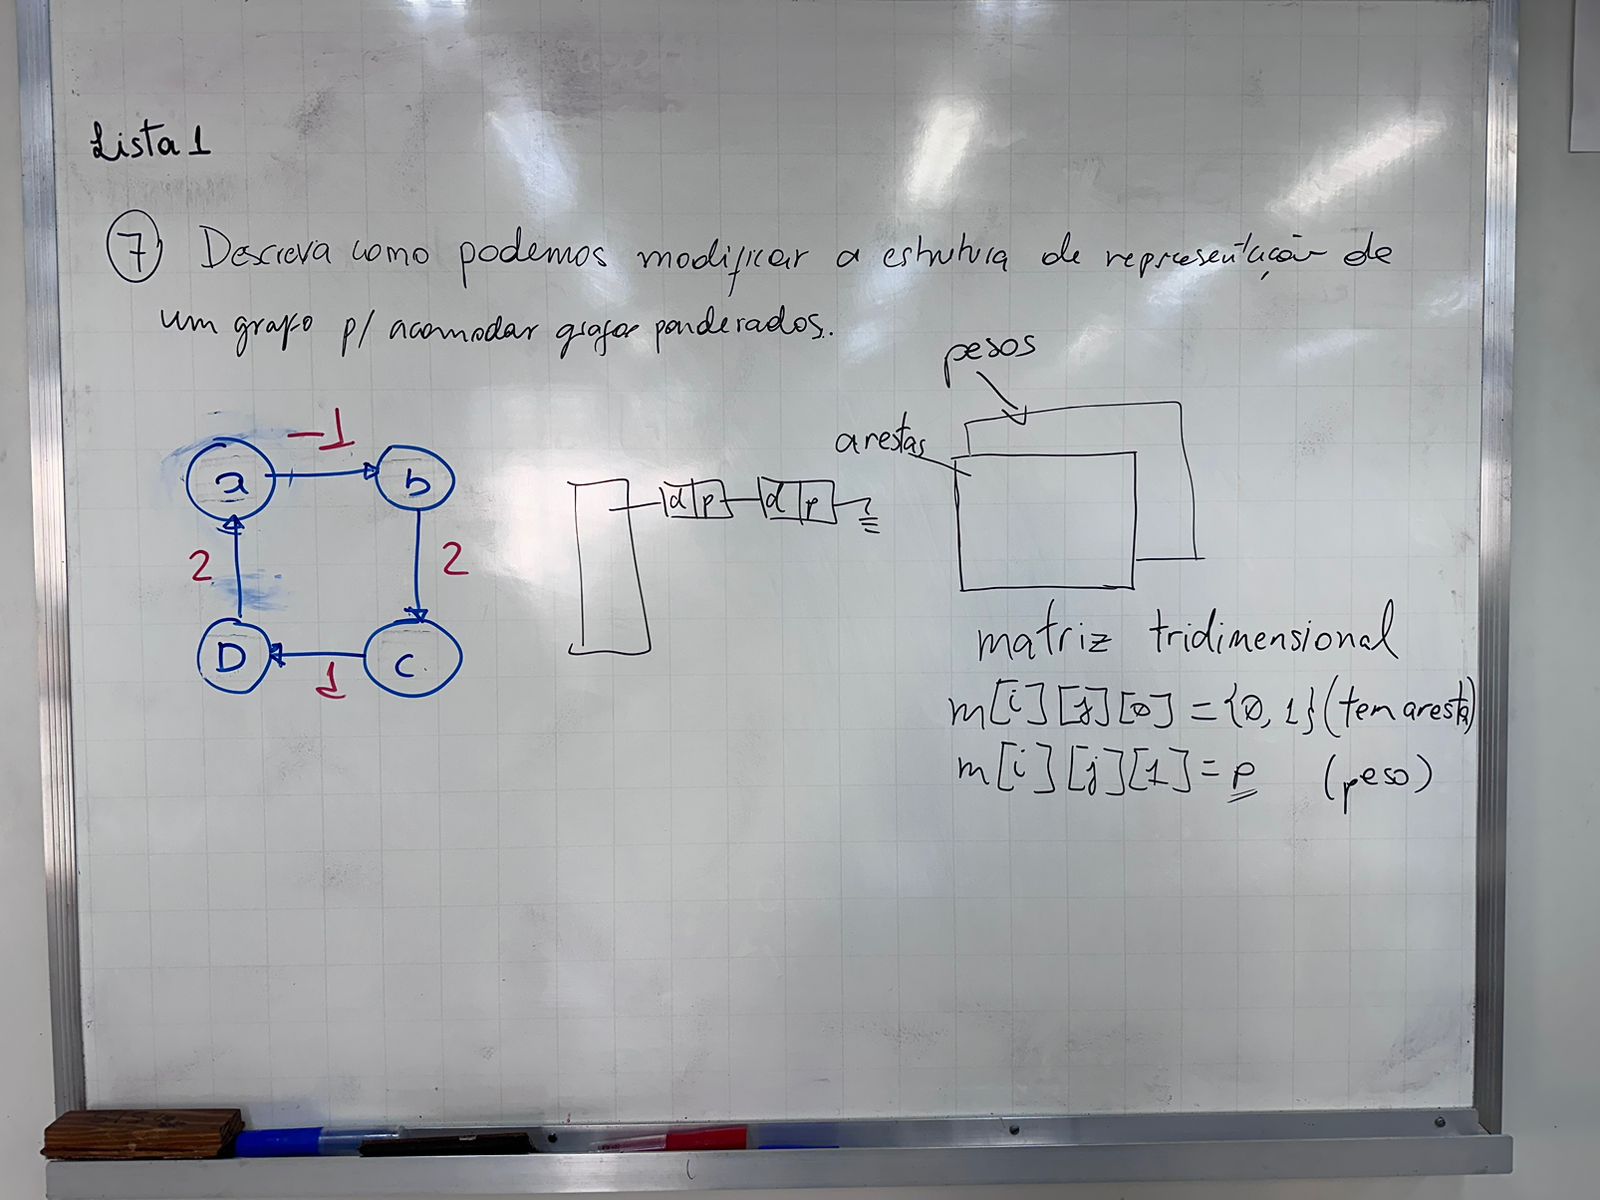 Lista 1
7 Descreva como podemos modificar a estrutura de representação de
um grafo p/ acomodar grafos ponderados.
pesos
arestas
-1
a b
d p d p
2 2
D c
1
matriz tridimensional
m[i][j][0] = {0, 1} (tem aresta)
m[i][j][1] = p (peso)